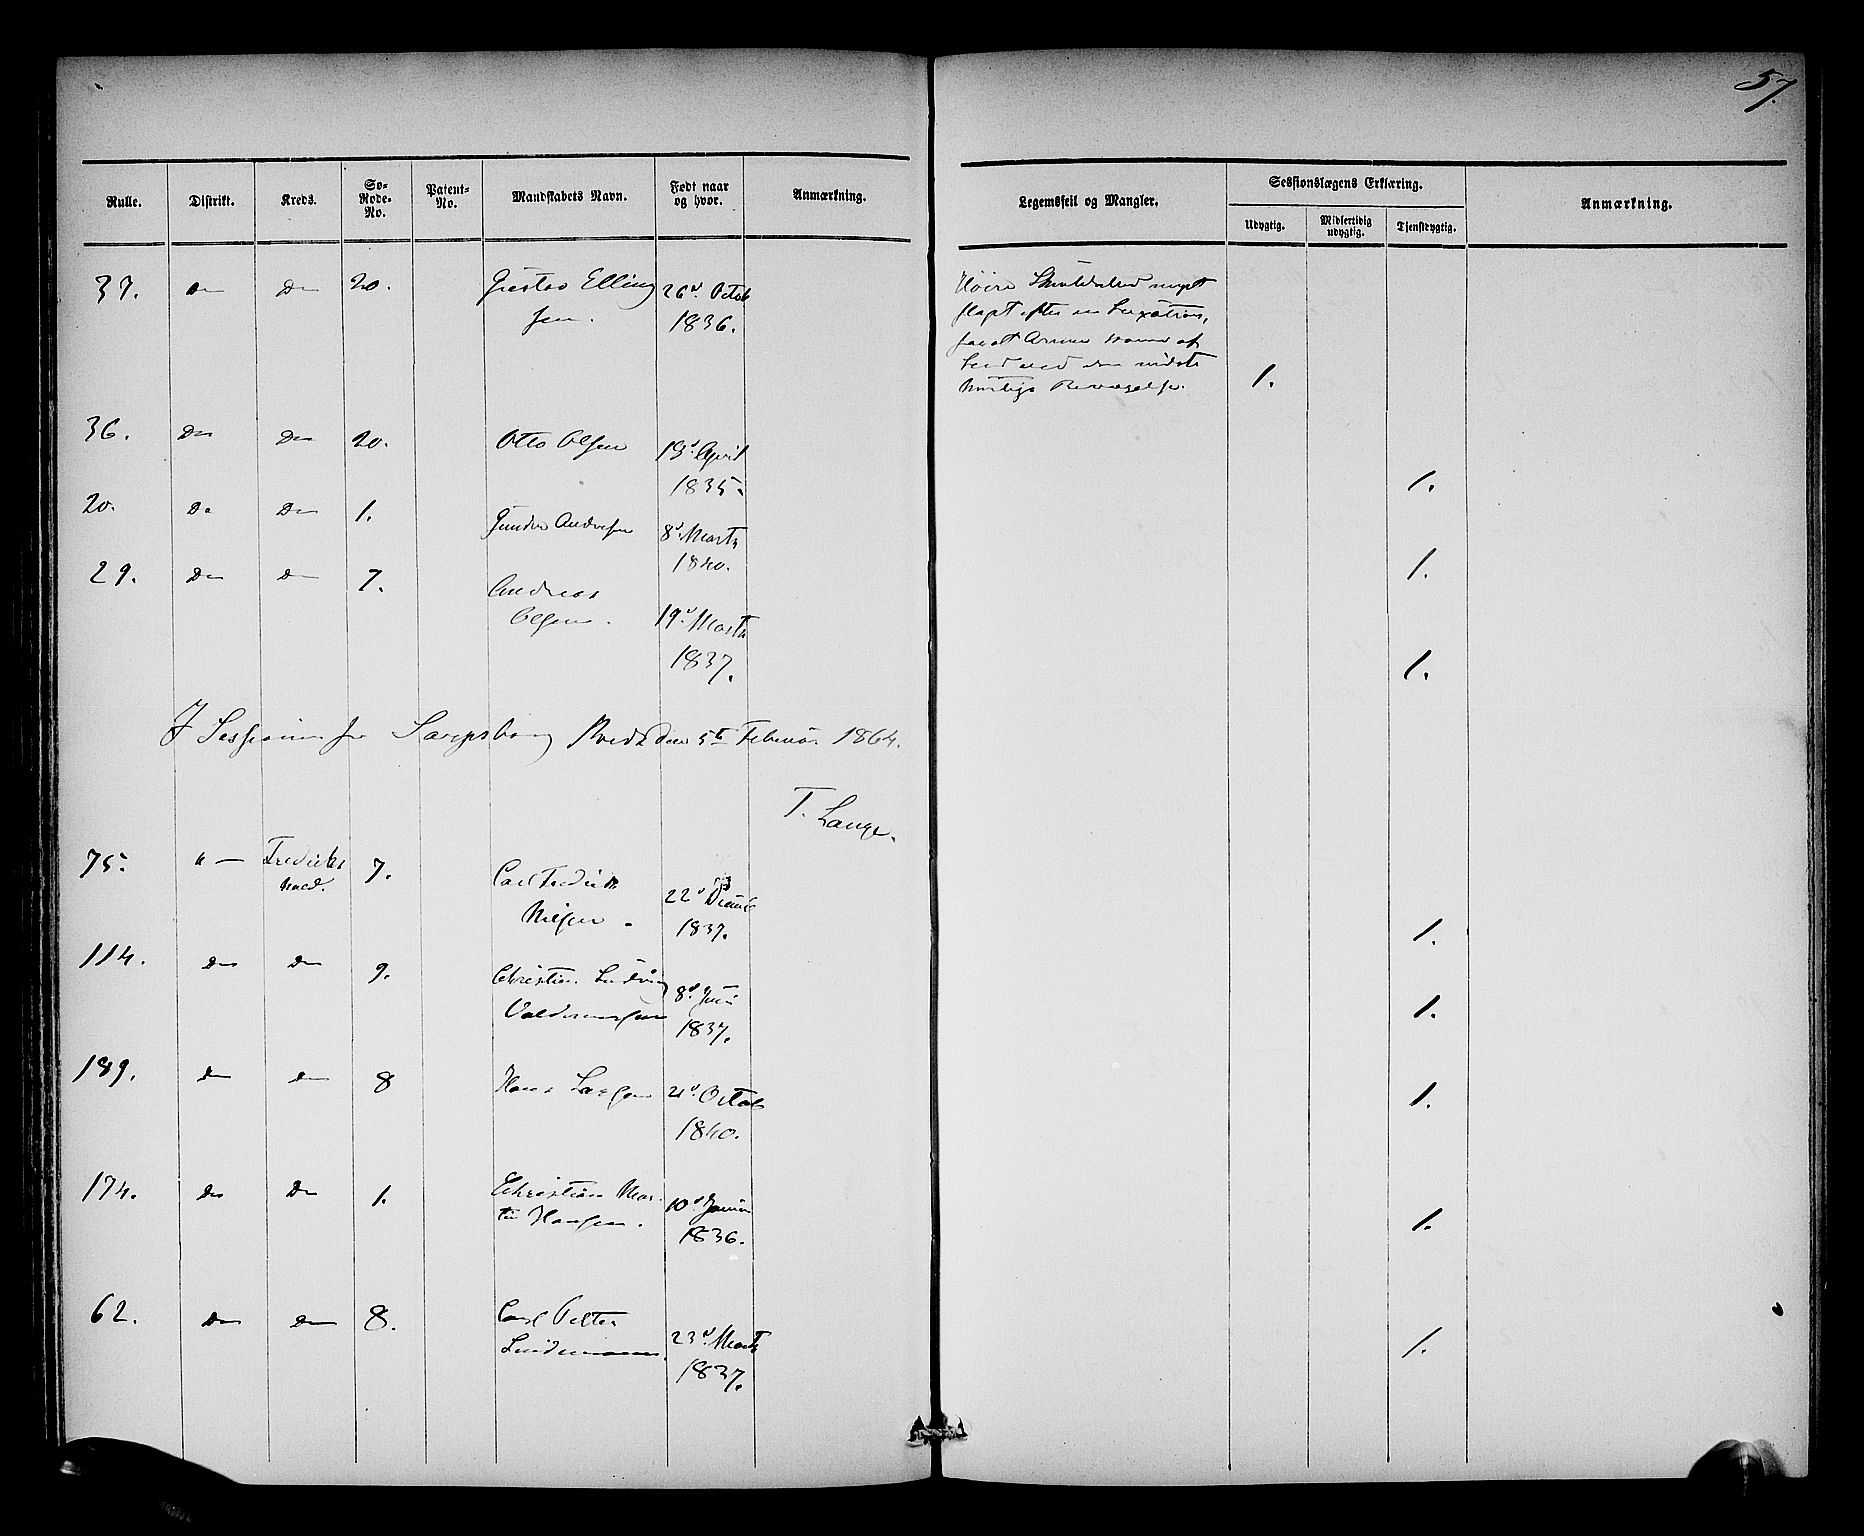 57.
Rulle. Distrikt. Kreds. So-Rode-No. Patent-No. Mandskabets Navn. Født naar og hvor. Anmærkning. Legemsfeil og Mangler. Sessionslægens Erklæring. Anmærkning.
Udygtig. Midlertidig udygtig. Tjenstdygtig.
37. Do Do 20. Gustav Elling 26d Octob
sen. 1836.
Høire Skulderled meget
slapt efter en Luxation,
saa at Armen
Led ved den mindste
hurtige Bevægelse. 1.
36. Do Do 20. Otto Olsen 19d April
1835. 1.
20. Do Do 1. Gunder Andresen 8d Marts
1840. 1.
29. Do Do 7. Andreas
Olsen. 19d Marts
1837. 1.
I Sessionen for Sarpsborg Kreds den 5te Februar 1864.
T. Lange.
75. " — Frederiks 7. Carl Fredrik 22d
hald. Nilsen 1837. 1.
114. Do Do 9. Christian Ludvig 8d Juni
Valdemarsen 1837. 1.
189. Do Do 8 Hans Larsen 21d Octob 1.
1840.
174. Do Do 1. Christian Mar- 10d Januar
tin Hansen. 1836. 1.
62. Do Do 8. Carl Petter
Lindemann. 23d Marts 1.
1837.